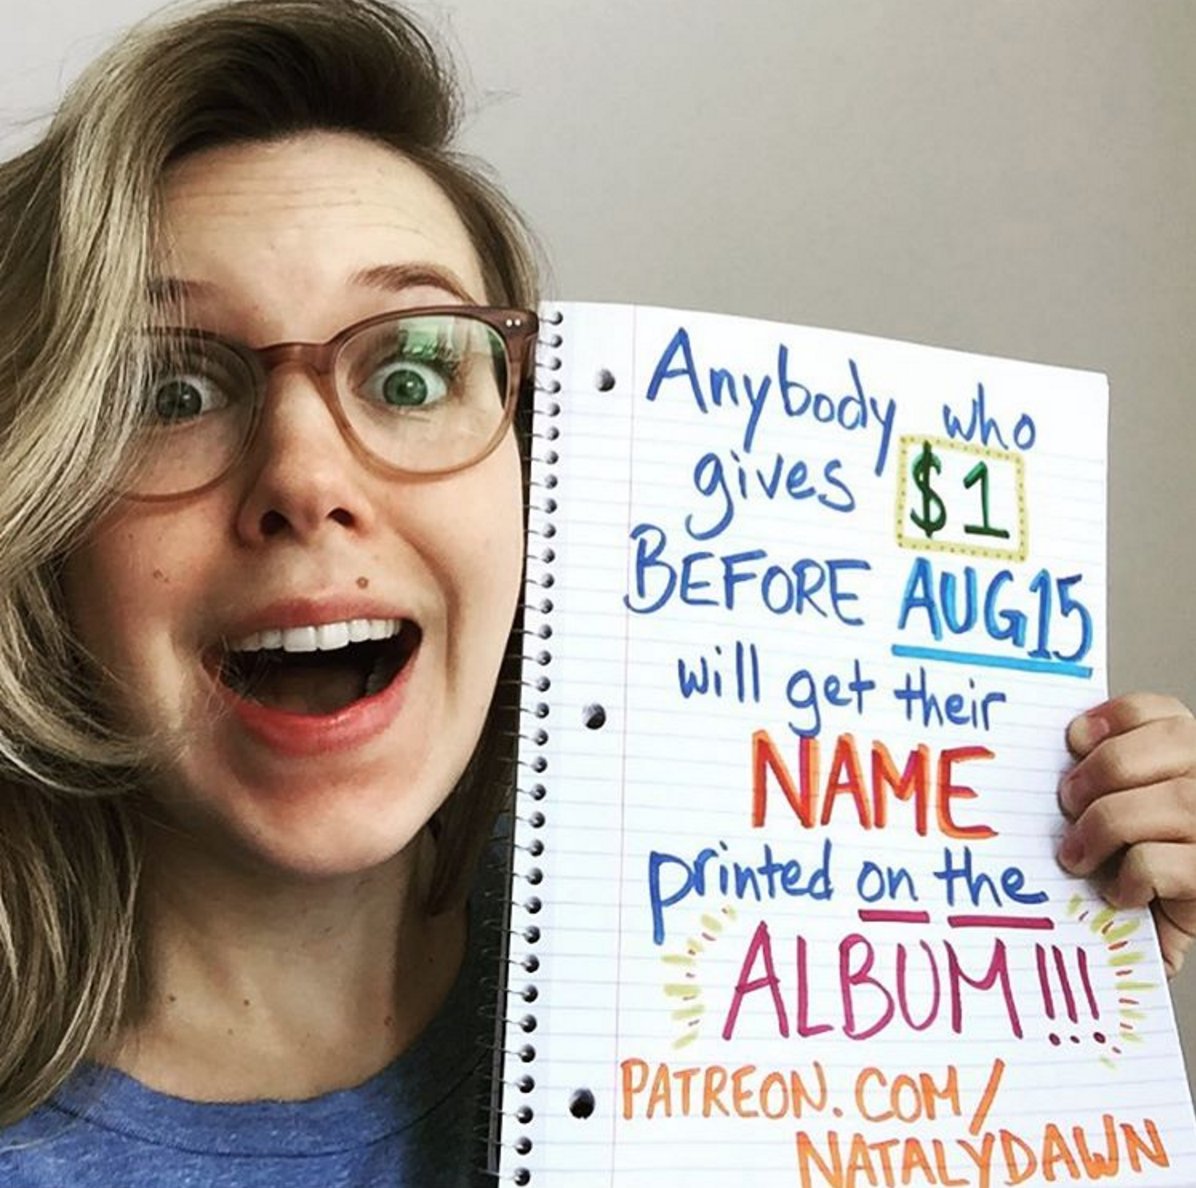 Anybody who
gives $1
BEFORE AUG15
will get their
NAME
printed on the
ALBUM!!!
PATREON.COM/
NATALYDAWN